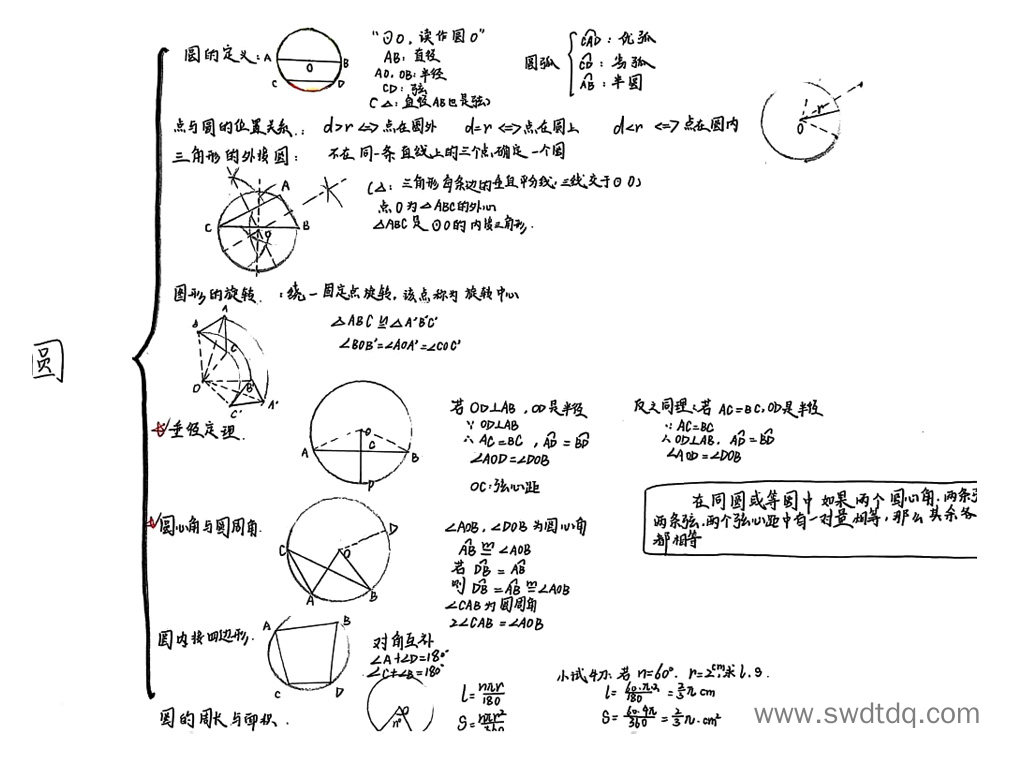 圆
圆的定义:
A
B
O
C
D
"⊙O,读作圆O"
AB:直径
AO,OB:半径
CD:弦
(△:直径AB也是弦)
圆弧
CAD:优弧
CD:劣弧
AB:半圆
点与圆的位置关系: d>r <=> 点在圆外 d=r <=> 点在圆上 d<r <=> 点在圆内
r
O
三角形的外接圆: 不在同一条直线上的三个点确定一个圆
A
C
B
O
(△:三角形每条边的垂直平分线,三线交于⊙O)
点O为△ABC的外心
△ABC是⊙O的内接三角形.
图形的旋转.:绕一固定点旋转,该点称为旋转中心
A
B
C
O
B'
C'
A'
△ABC≌△A'B'C'
∠BOB'=∠AOA'=∠COC'
垂径定理.
O
C
A
B
D
若OD⊥AB,OD是半径
∵OD⊥AB
∴AC=BC,AD=BD
∠AOD=∠DOB
OC:弦心距
反之同理:若AC=BC,OD是半径
∵AC=BC
∴OD⊥AB,AD=BD
∠AOD=∠DOB
在同圆或等圆中如果两个圆心角,两条
两条弦,两个弦心距中有一对量相等,那么其余各
都相等
圆心角与圆周角.
D
C
O
A
B
∠AOB,∠DOB为圆心角
AB m= ∠AOB
若DB=AB
则DB=AB m= ∠AOB
∠CAB为圆周角
2∠CAB=∠AOB
圆内接四边形.
A
B
C
D
对角互补
∠A+∠D=180°
∠C+∠B=180°
圆的周长与面积.
n°
l=nπr/180
S=nπr²/360
小试牛刀:若n=60°,r=2cm,求l.S.
l=60·π·2/180=2/3π cm
S=60·4π/360=2/3π·cm²
www.swdtdq.com